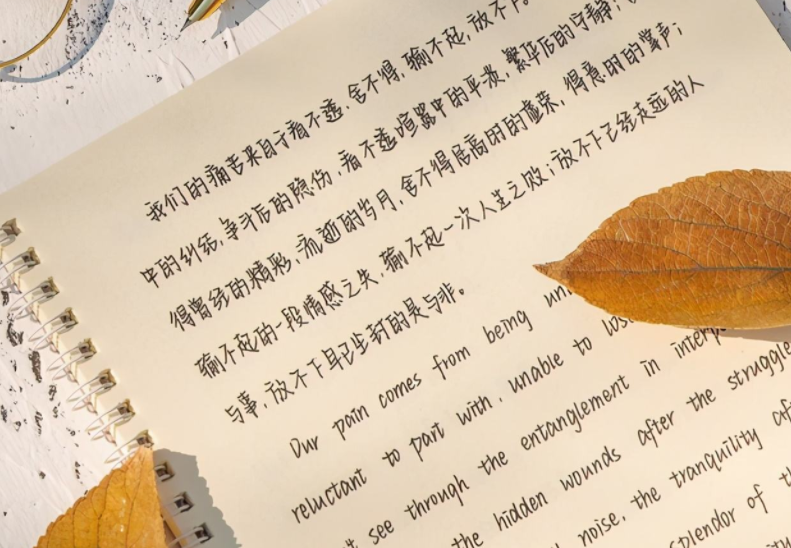 我们的痛苦来自于看不透、舍不得、输不起、放不下。
中的纠结,争斗后的隐伤,看不透喧嚣中的平淡,繁华后的宁静;
得曾经的精彩、而逝的岁月,舍不得居高时的虚荣,得意时的掌声;
输不起的一段情感之失,输不起一次人生之败;放不下已经走远的人
与事,放不下早已尘封的是与非。
Our pain comes from being
reluctant to part with, unable to
see through the entanglement in
the hidden wounds after the struggle
noise, the tranquility
splendor of